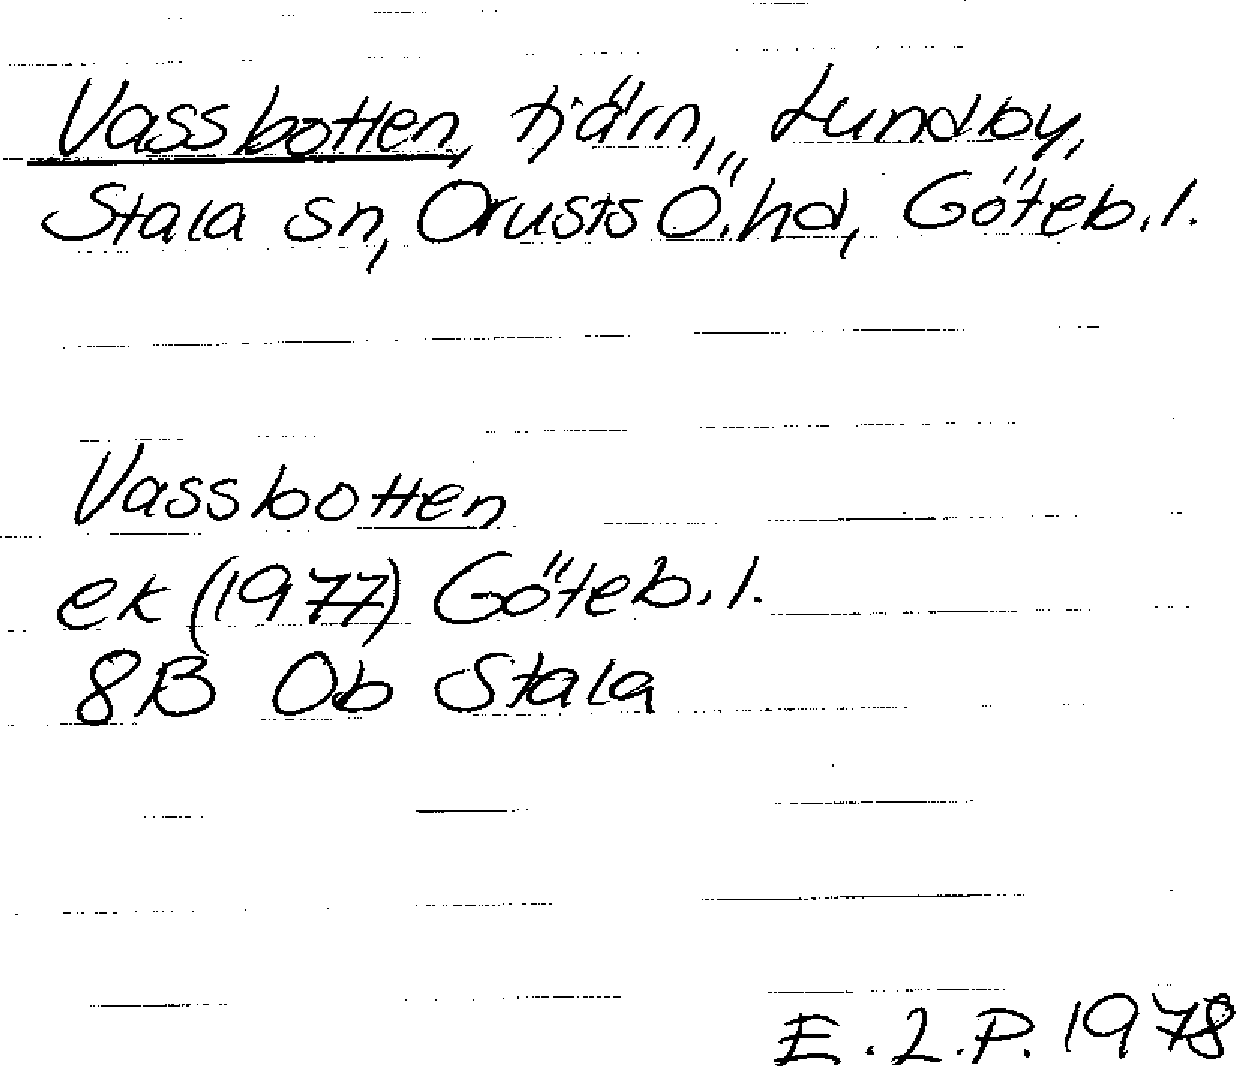 Vassbotten, tjärn, Lundby,
Stala sn, Orusts Ö. hd, Göteb. l.
Vassbotten
ek (1977) Göteb. l.
8B 0b Stala
E. L. P. 1978